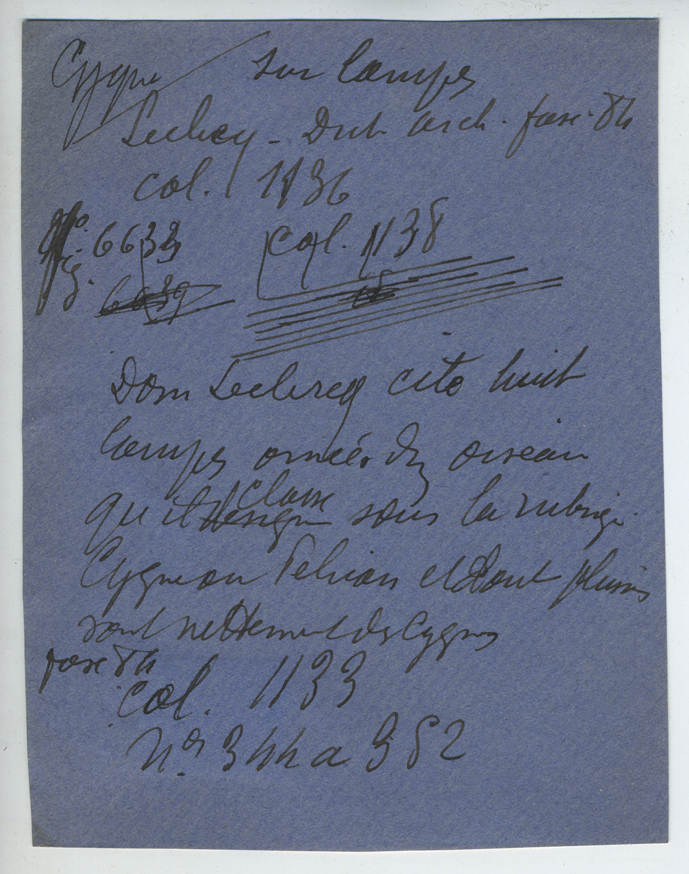 Cygne sur lampes
Leclercq - Dict arch. fasc. 84
col. 1136
fig. 6633 col. 1138
6639
Dom Leclercq cite huit
lampes ornées d'un oiseau
qu'il désigne classe sous la rubrique
Cygne ou Pélican et dont plusieurs
sont nettement des Cygnes
fasc 84
col. 1133
nos 344 a 352